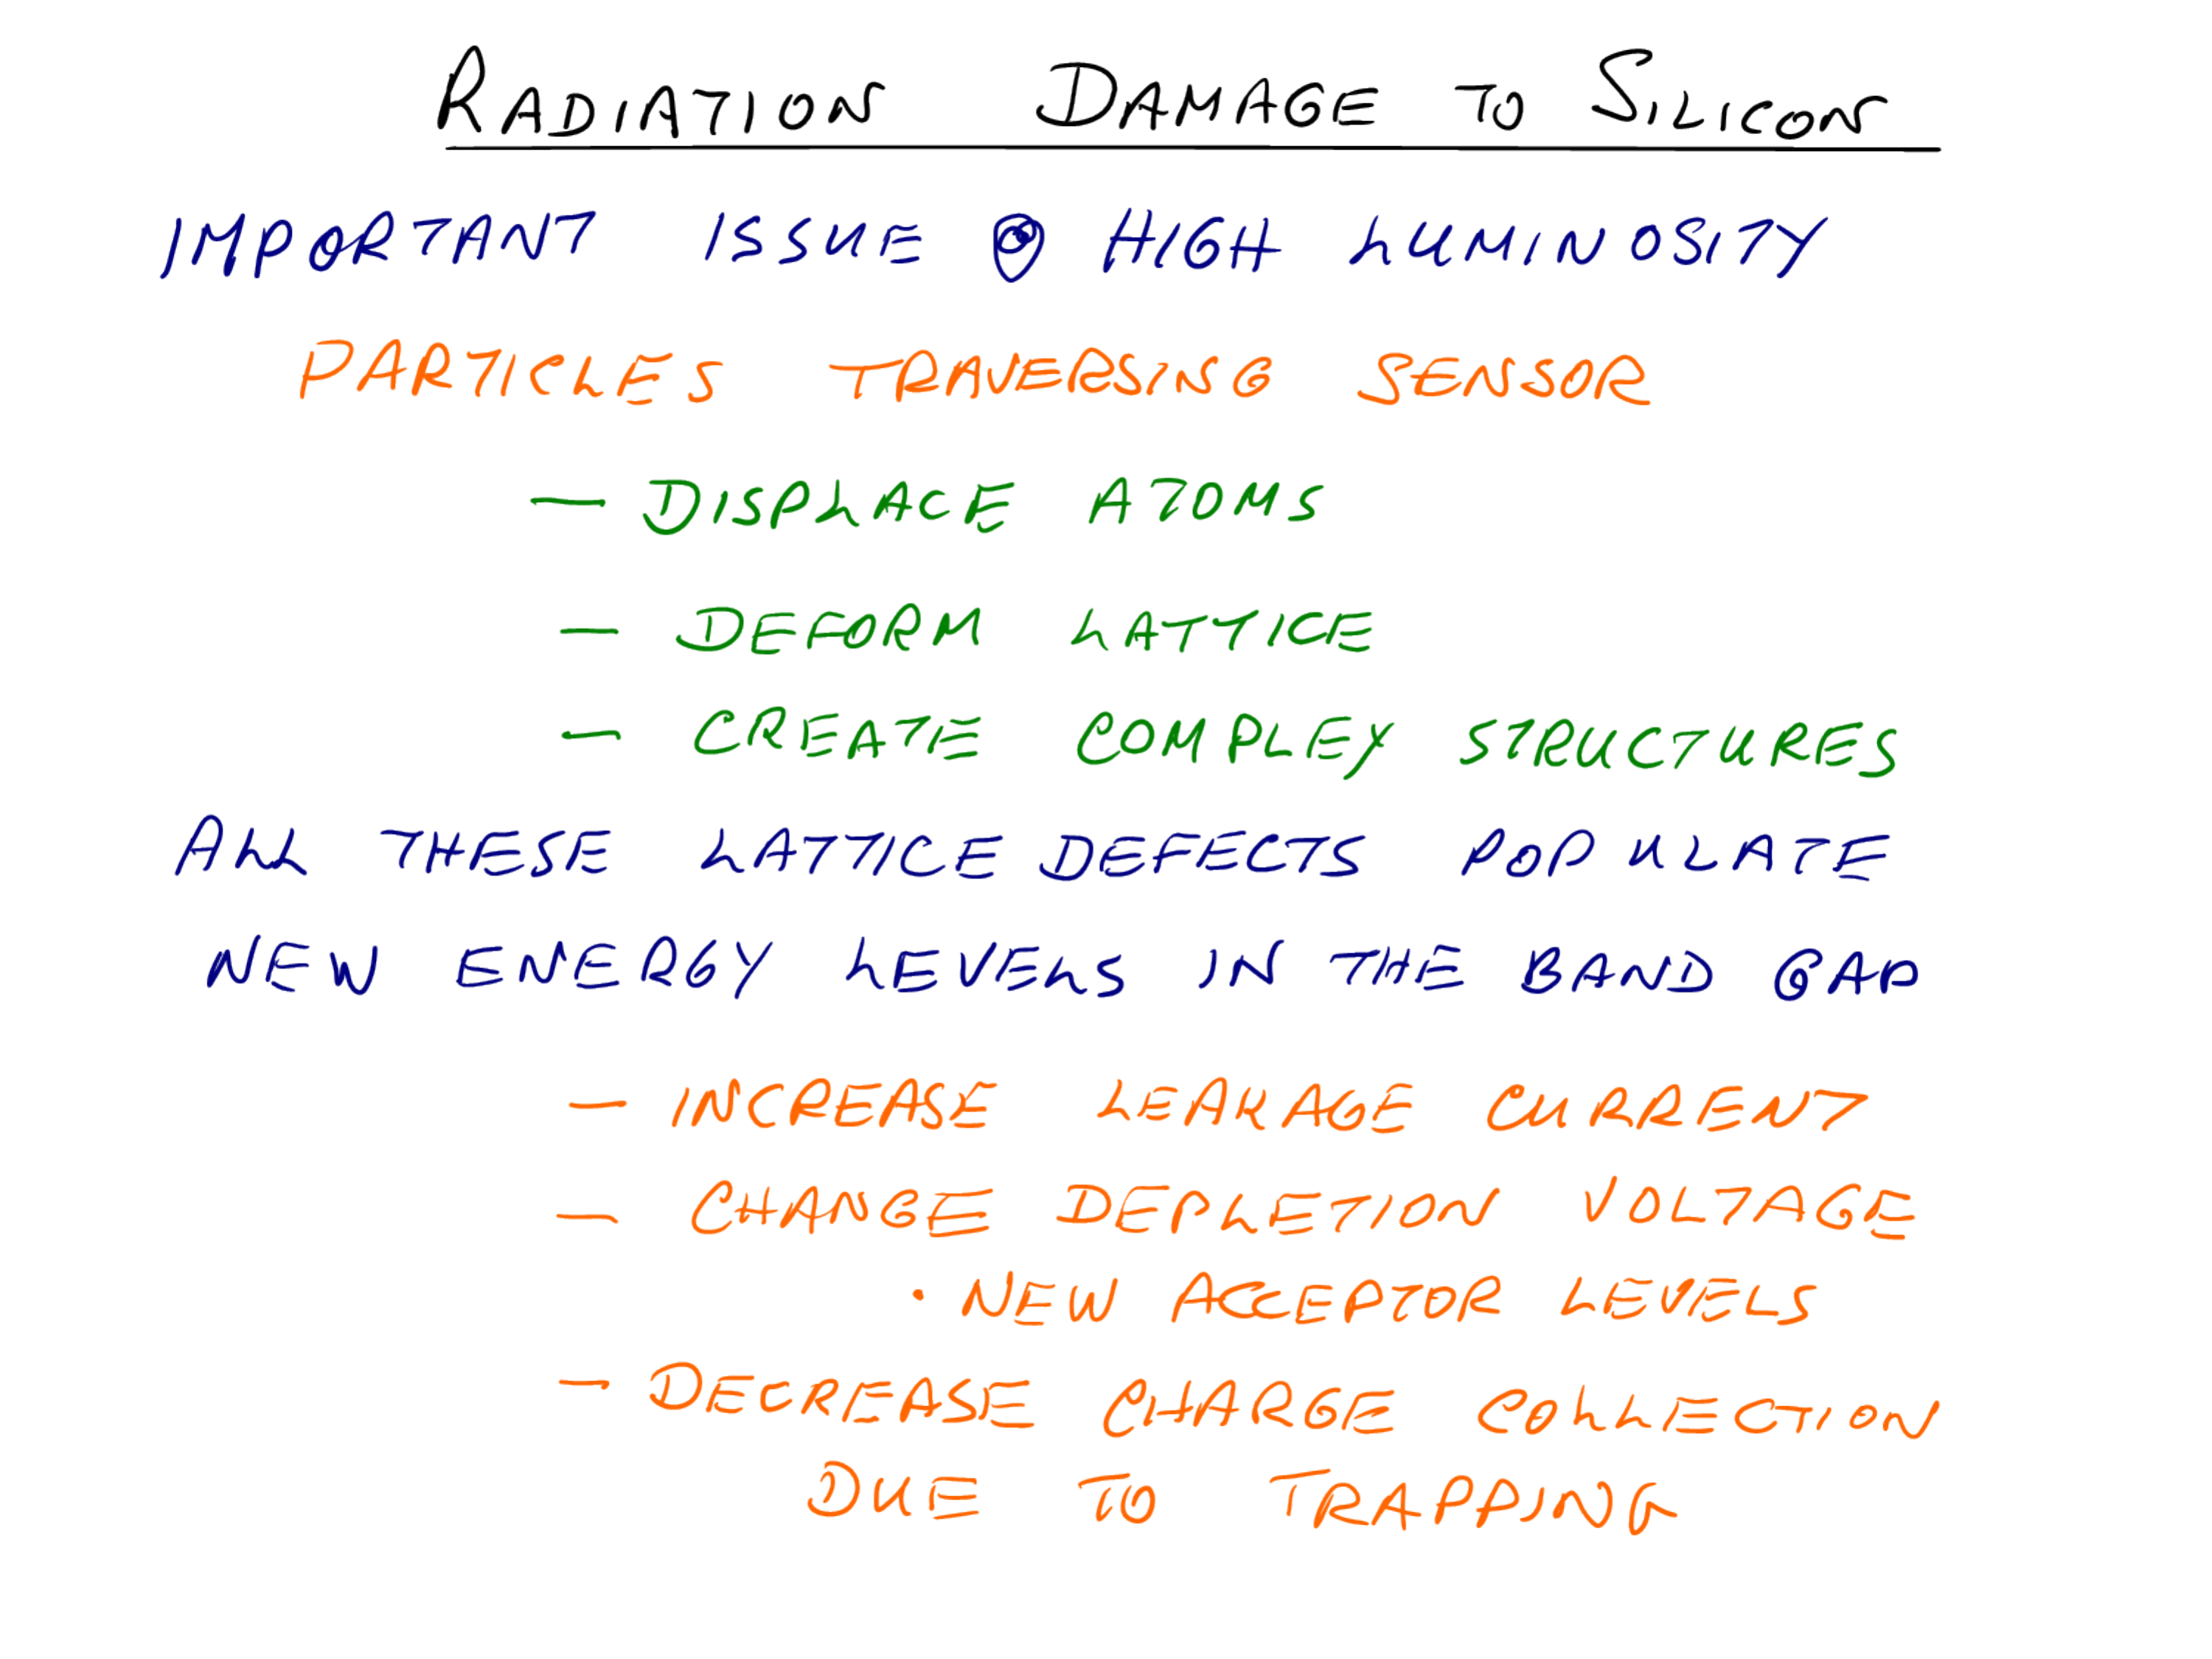 RADIATION DAMAGE TO SILICON
IMPORTANT ISSUE @ HIGH LUMINOSITY
PARTICLES TRAVERSING SENSOR
— DISPLACE ATOMS
— DEFORM LATTICE
— CREATE COMPLEX STRUCTURES
ALL THESE LATTICE DEFECTS POPULATE
NEW ENERGY LEVELS IN THE BAND GAP
— INCREASE LEAKAGE CURRENT
— CHANGE DEPLETION VOLTAGE
• NEW ACCEPTOR LEVELS
— DECREASE CHARGE COLLECTION
DUE TO TRAPPING